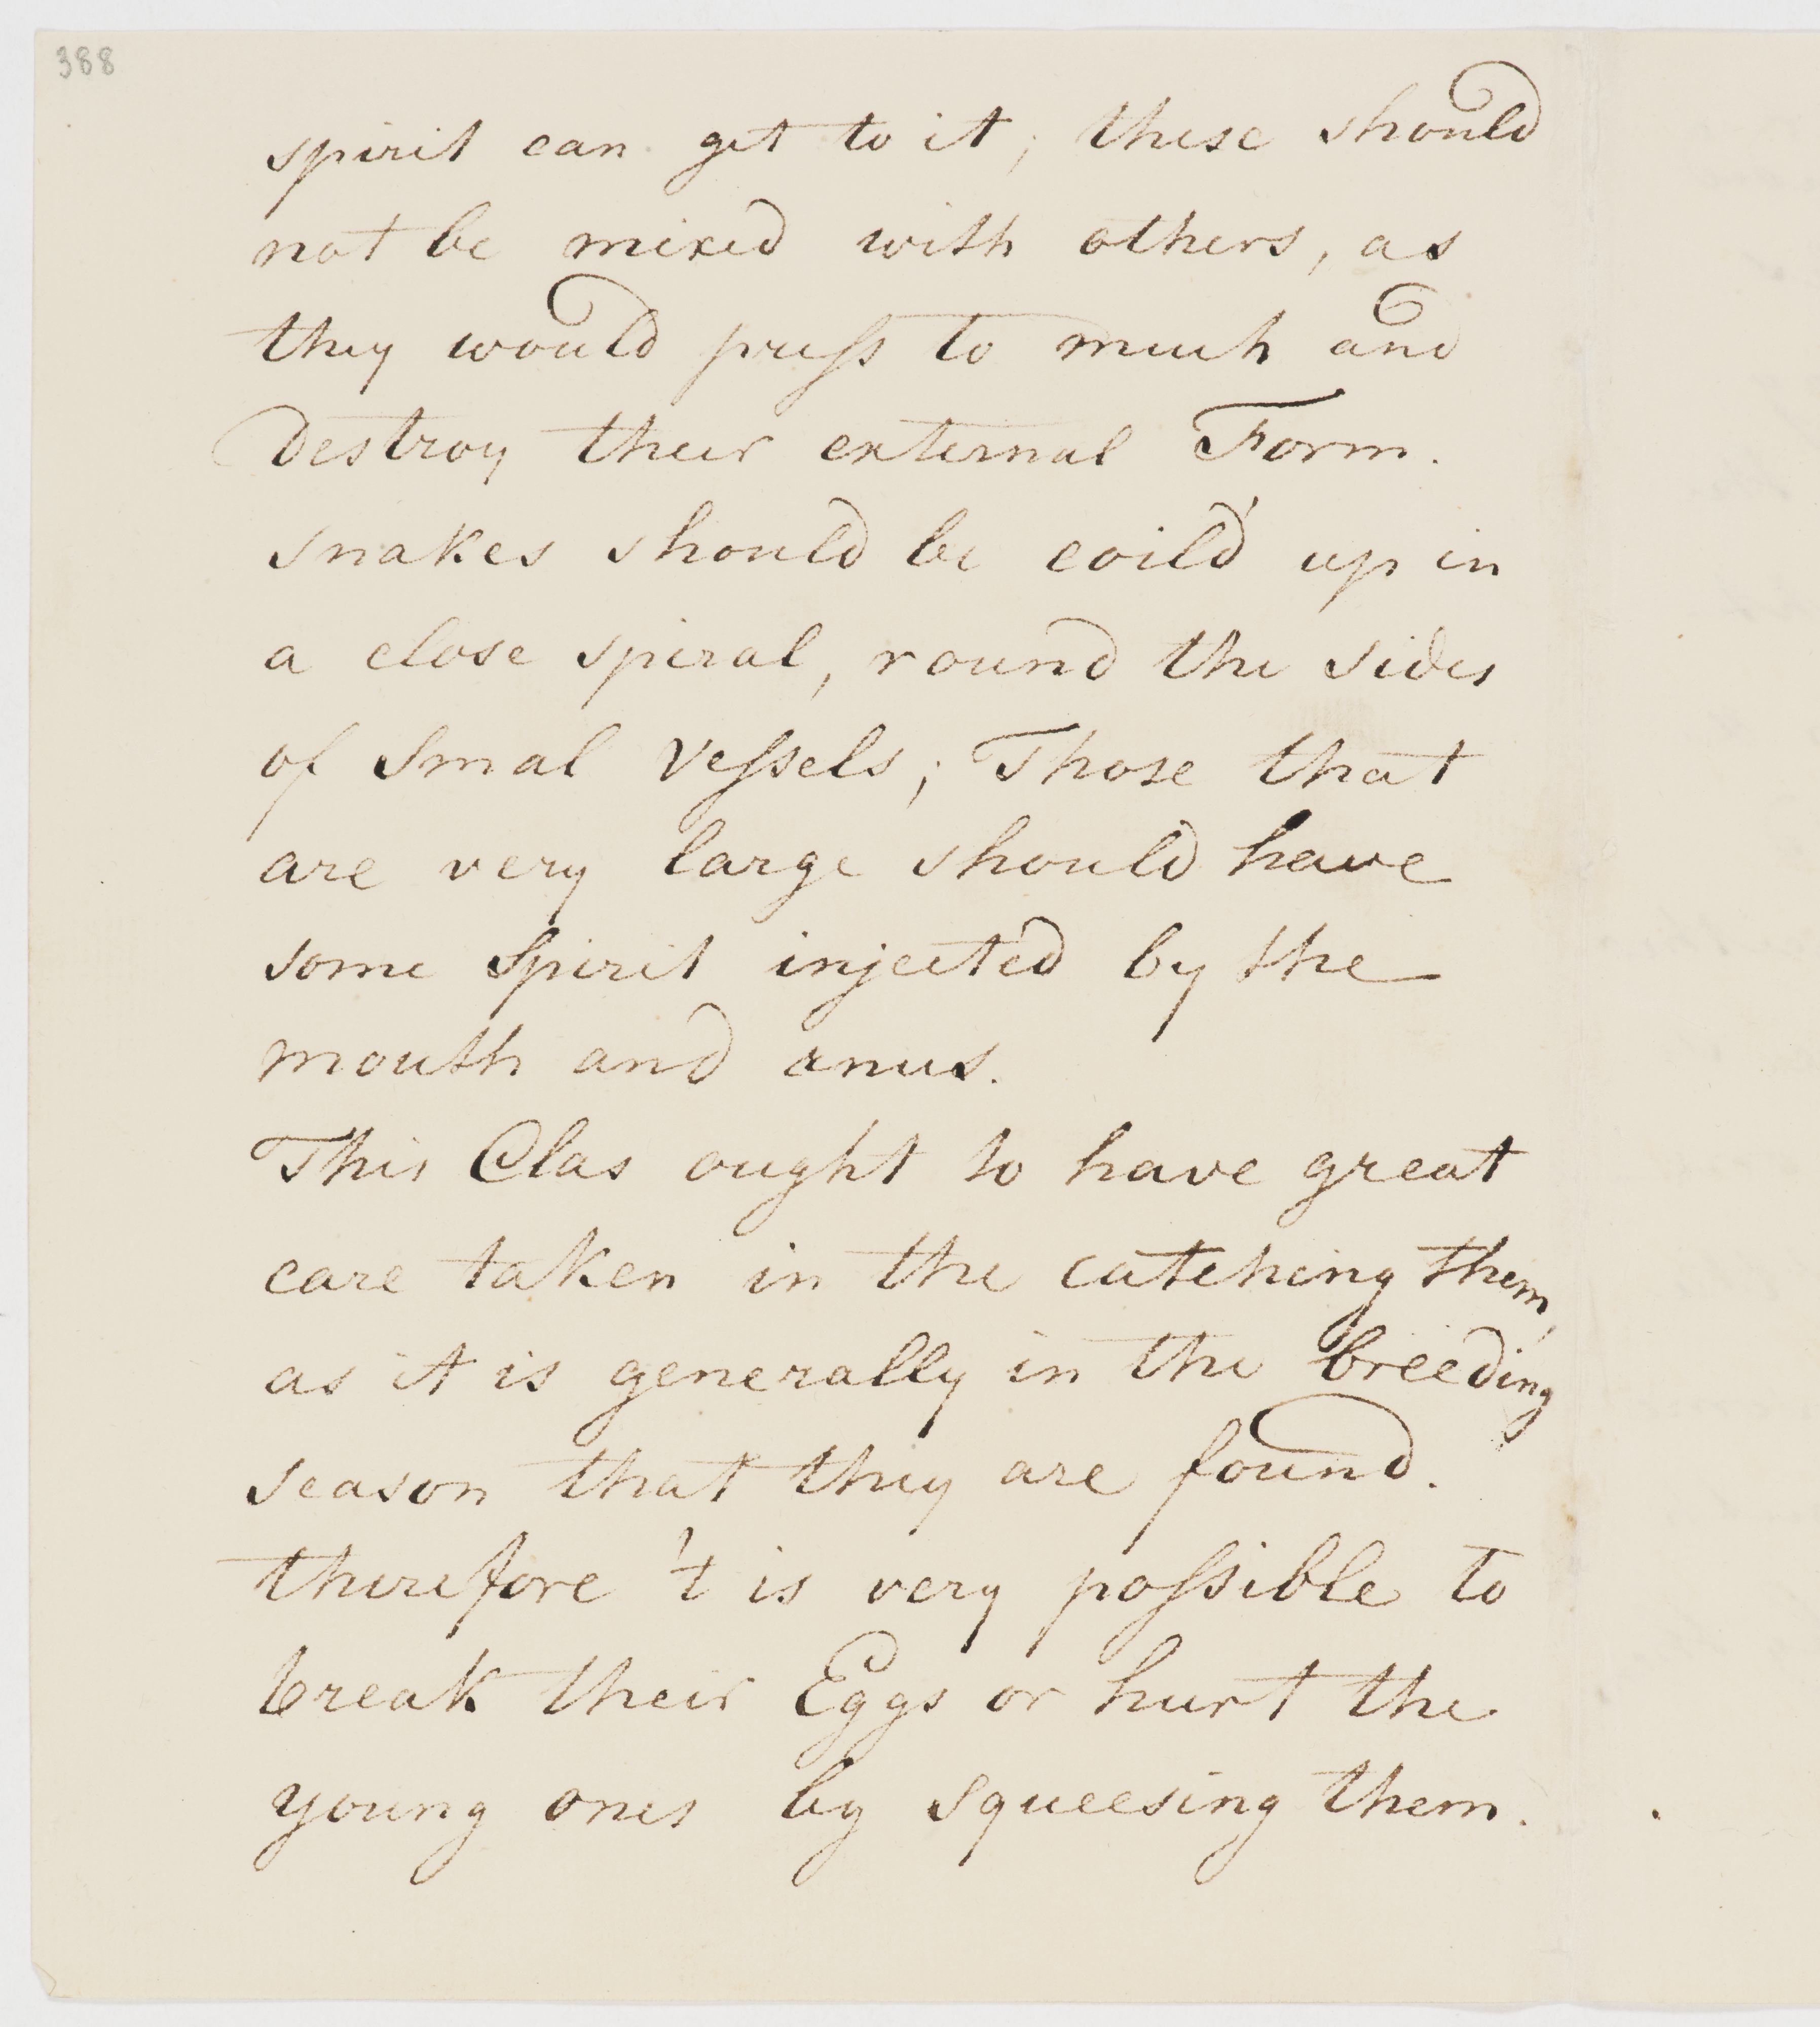 388
spirit can get to it; these should
not be mixed with others, as
they would press to much and
Destroy their external Form.
snakes should be coild' up in
a close spiral, round the sides
of Smal Vessels; Those that
are very large should have
some Spirit injected by the
mouth and anus.
This Clas ought to have great
care taken in the catching them,
as it is generally in the breeding
season that they are found.
therefore 't is very possible to
break their Eggs or hurt the
young ones by squeesing them.